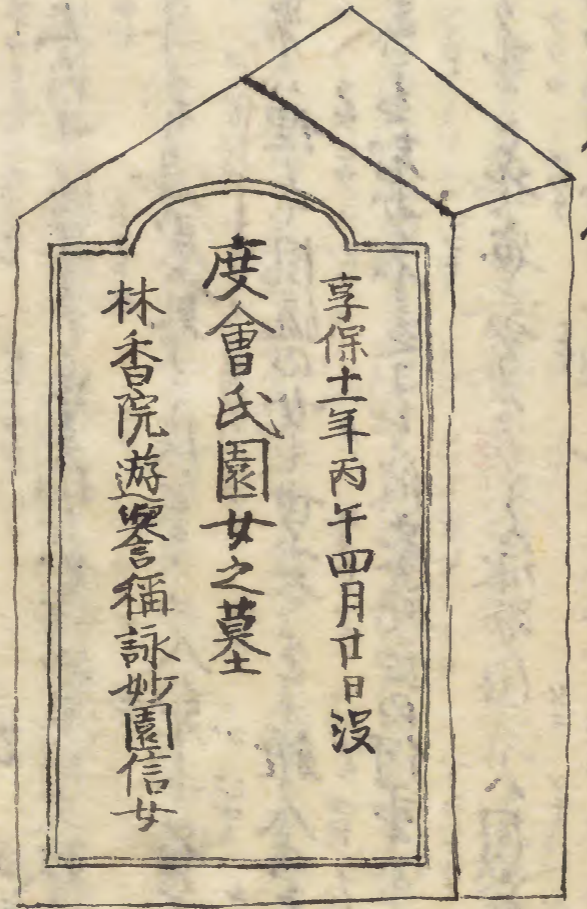 享保十一年丙午四月廿日没
度會氏園女之墓
林香院遊譽稱詠妙園信女